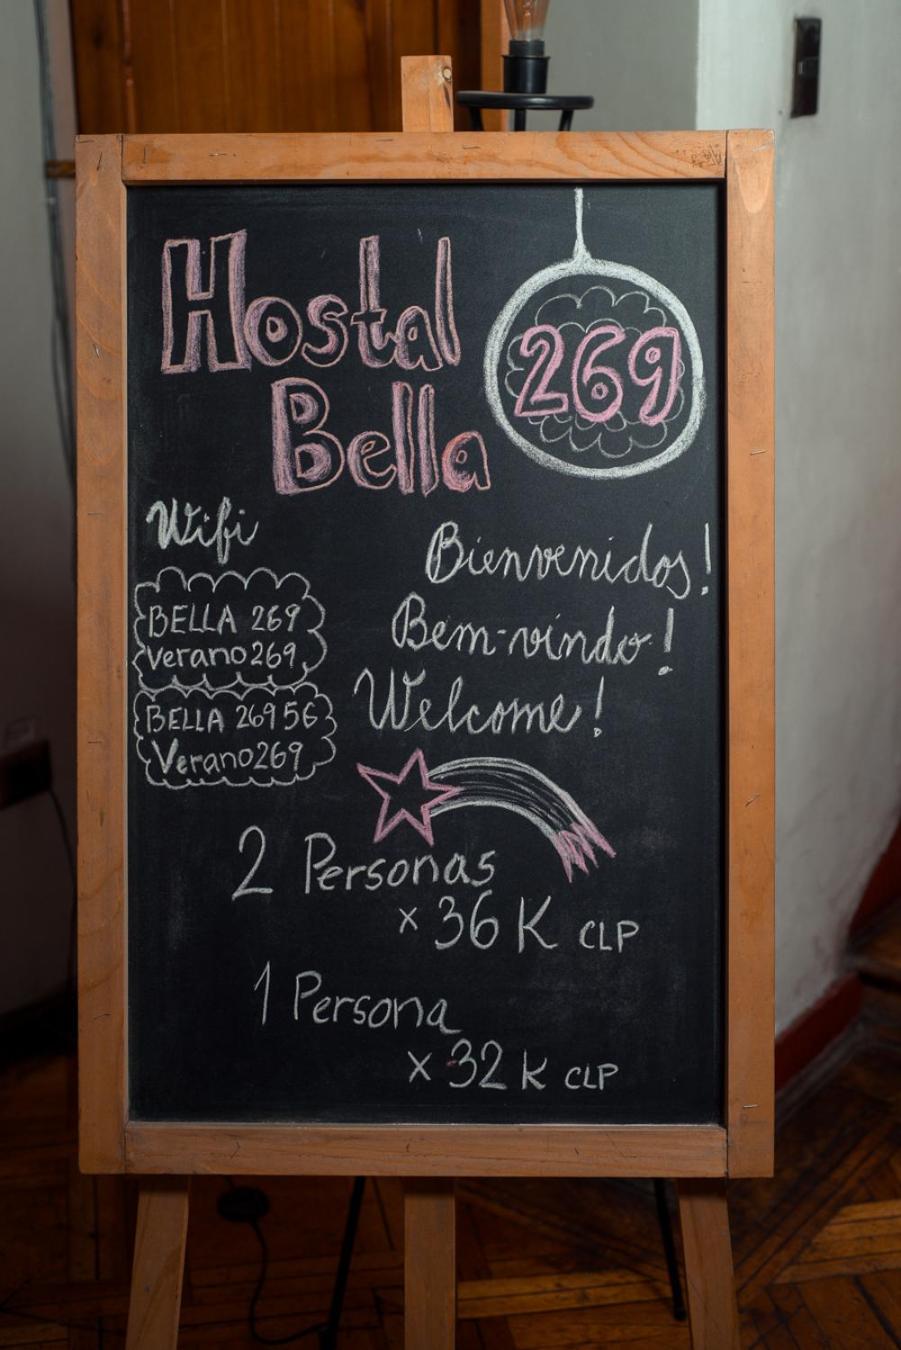 Hostal
Bella
269
Wifi
BELLA 269
Verano269
BELLA 269 5G
Verano269
Bienvenidos!
Bem-vindo!
Welcome!
2 Personas
x 36 K CLP
1 Persona
x 32 K CLP